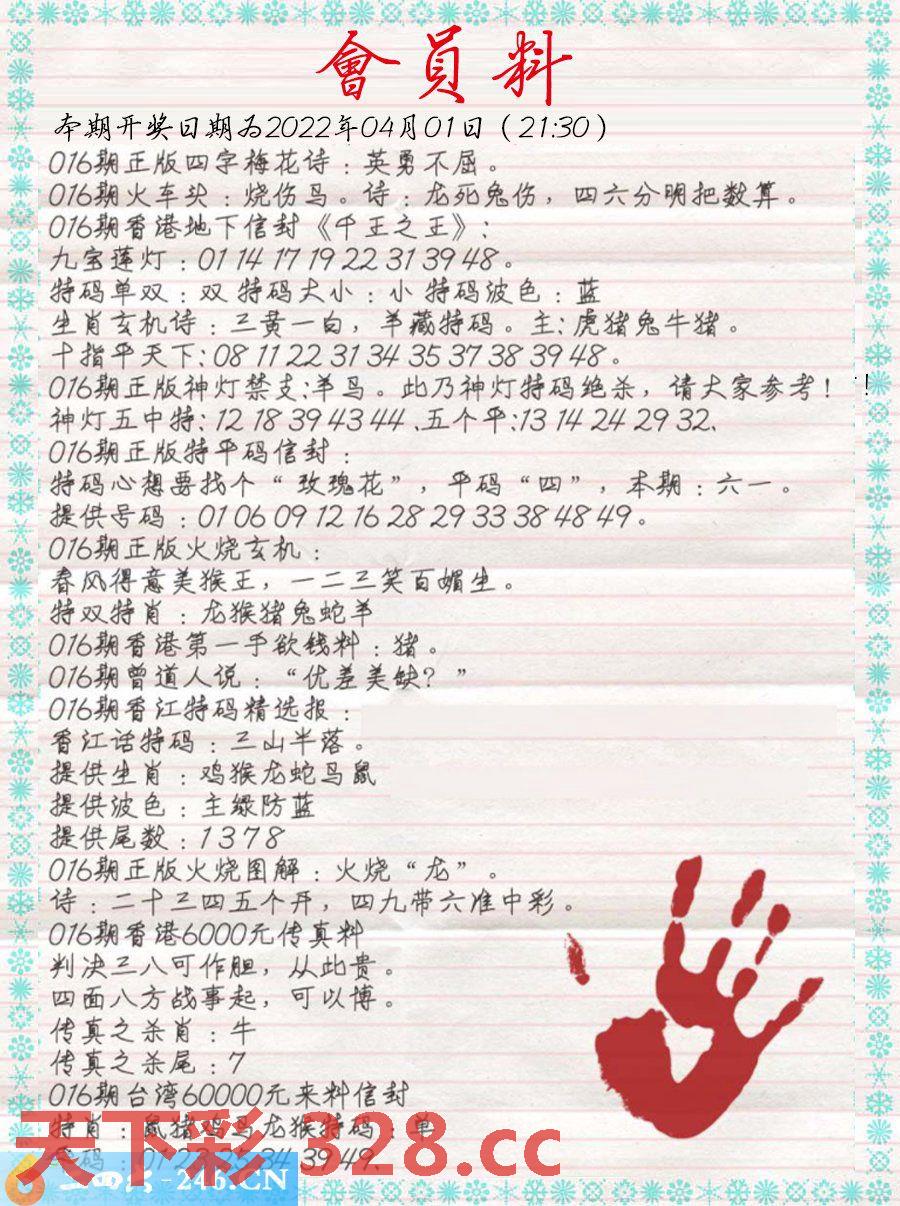 會員料
本期开奖日期为2022年04月01日（21:30）
016期正版四字梅花诗：英勇不屈。
016期火车头：烧伤鸟。诗：龙死兔伤，四六分明把数算。
016期香港地下信封《千王之王》：
九宝莲灯：01 14 17 19 22 31 39 48。
特码单双：双 特码大小：小 特码波色：蓝
生肖玄机诗：三黄一白，羊藏特码。主：虎猪兔牛猪。
十指平天下：08 11 22 31 34 35 37 38 39 48。
016期正版神灯禁支：羊鸟。此乃神灯特码绝杀，请大家参考！！
神灯五中特：12 18 39 43 44 .五个平：13 14 24 29 32.
016期正版特平码信封：
特码心想要找个“玫瑰花”，平码“四”，本期：六一。
提供号码：01 06 09 12 16 28 29 33 38 48 49。
016期正版火烧玄机：
春风得意美猴王，一二三笑百媚生。
特双特肖：龙猴猪兔蛇羊
016期香港第一手欲钱料：猪。
016期曾道人说：“优差美缺？”
016期香江特码精选报：
香江话特码：三山半落。
提供生肖：鸡猴龙蛇鸟鼠
提供波色：主绿防蓝
提供尾数：1 3 7 8
016期正版火烧图解：火烧“龙”。
诗：二十三四五个开，四九带六准中彩。
016期香港6000元传真料
判决三八可作胆，从此贵。
四面八方战事起，可以博。
传真之杀肖：牛
传真之杀尾：7
016期台湾60000元来料信封
特肖：鼠猪鸡鸟龙猴特码：单
天下彩 328.cc
-246.CN